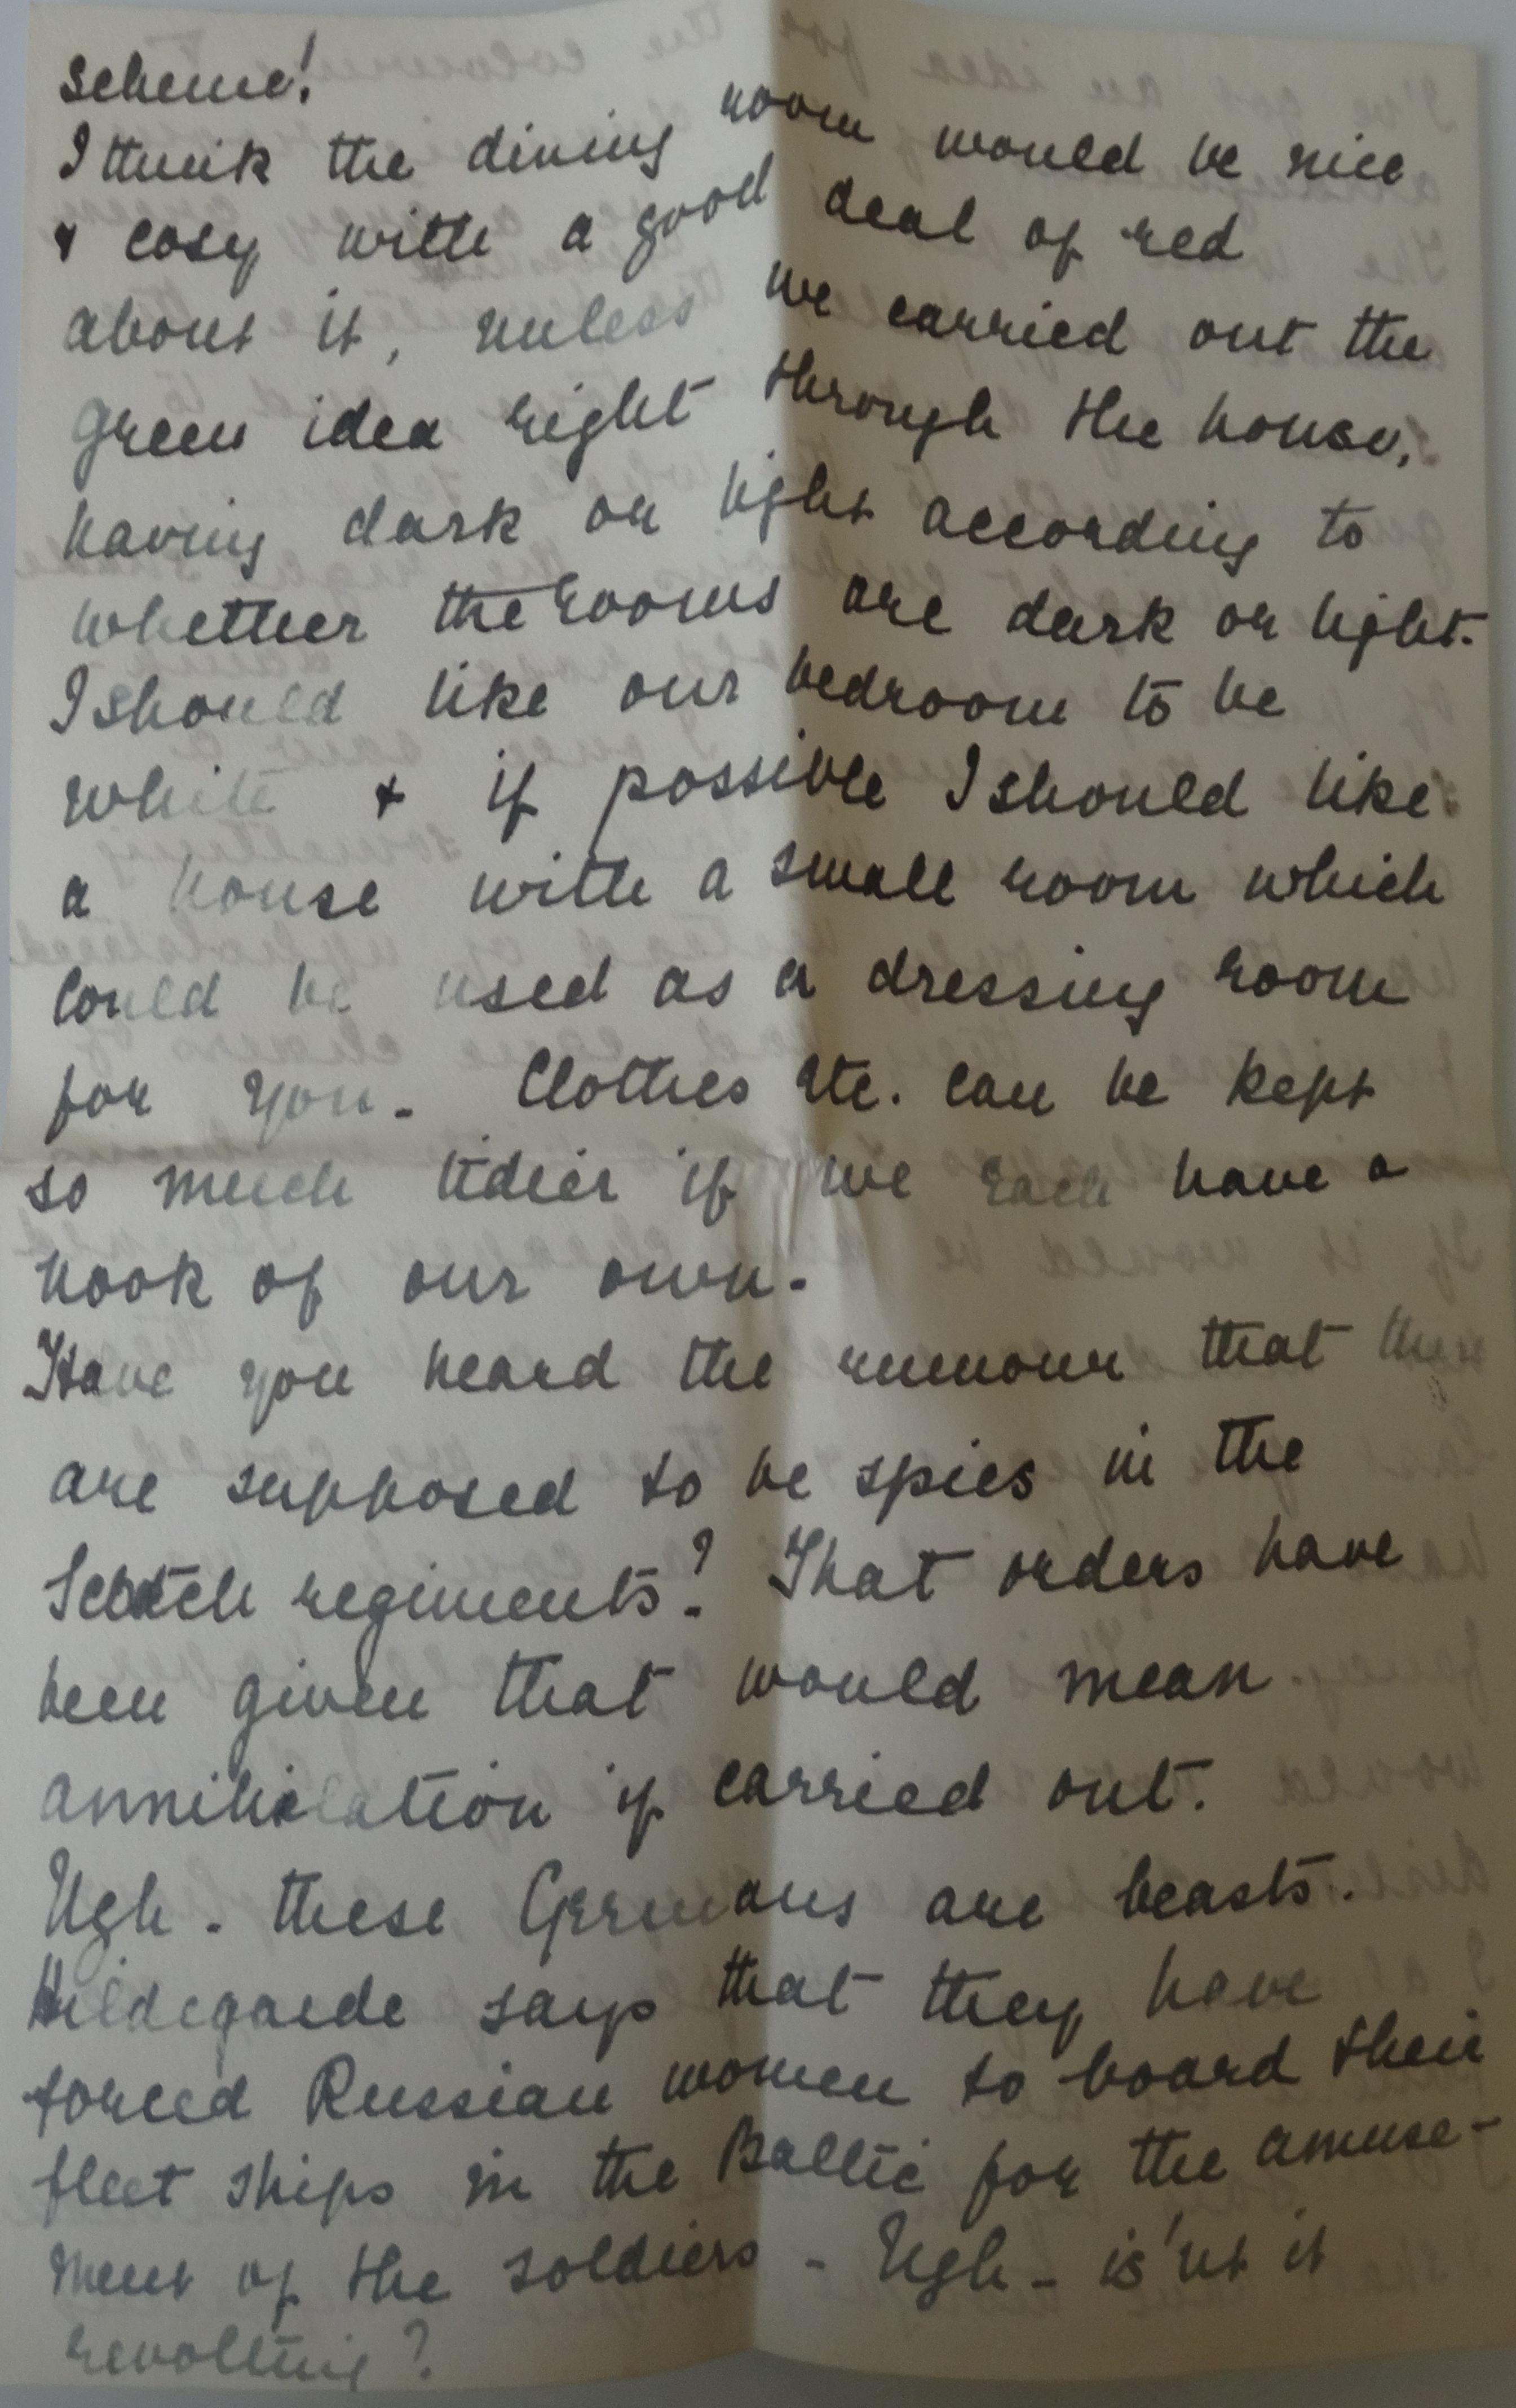 scheme!
I think the dining room would be nice
& cosy with a good deal of red
about it, unless we carried out the
green idea right through the house,
having dark or light according to
whether the rooms are dark or light.
I should like our bedroom to be
white & if possible I should like
a house with a small room which
could be used as a dressing room
for you. Clothes etc. can be kept
so much tidier if we each have a
nook of our own.
Have you heard the rumour that there
are supposed to be spies in the
Scotch regiments? That orders have
been given that would mean
annihilation if carried out.
Ugh - these Germans are beasts.
Hildegarde says that they have
forced Russian women to board their
fleet ships in the Baltic for the amuse-
ment of the soldiers - Ugh - is'nt it
revolting?